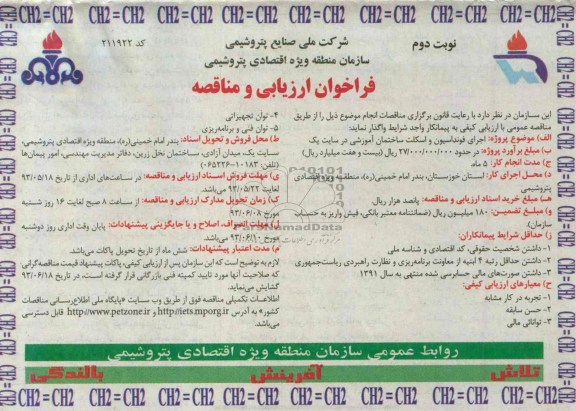 CH2=CH2 CH2=CH2 CH2=CH2 CH2=CH2 CH2=CH2 CH2=CH2
نوبت دوم
شرکت ملی صنایع پتروشیمی
سازمان منطقه ویژه اقتصادی پتروشیمی
کد ۲۱۱۹۲۲
فراخوان ارزیابی و مناقصه
این سازمان در نظر دارد با رعایت قانون برگزاری مناقصات انجام موضوع ذیل را از طریق
مناقصه عمومی با ارزیابی کیفی به پیمانکار واجد شرایط واگذار نماید:
الف) موضوع پروژه: اجرای فونداسیون و اسکلت ساختمان آموزشی در سایت یک
ب) مبلغ برآورد پروژه: در حدود ۲۷/۰۰۰/۰۰۰/۰۰۰ ریال (بیست و هفت میلیارد ریال)
ج) مدت انجام کار: ۵ ماه
د) محل اجرای کار: استان خوزستان، بندر امام خمینی(ره)، منطقه ویژه اقتصادی
پتروشیمی
هـ) مبلغ خرید اسناد ارزیابی و مناقصه: پانصد هزار ریال
و) مبلغ تضمین: ۱۸۰ میلیون ریال (ضمانتنامه معتبر بانکی، فیش واریز به حساب
سازمان)
ز) حداقل شرایط پیمانکاران:
۱- داشتن شخصیت حقوقی، کد اقتصادی و شناسه ملی
۲- داشتن حداقل رتبه ۴ ابنیه از معاونت برنامه‌ریزی و نظارت راهبردی ریاست‌جمهوری
۳- داشتن صورت‌های مالی حسابرسی شده منتهی به سال ۱۳۹۱
ح) معیارهای ارزیابی کیفی:
۱- تجربه در کار مشابه
۲- حسن سابقه
۳- توانائی مالی
۴- توان تجهیزاتی
۵- توان فنی و برنامه‌ریزی
ط) محل فروش و تحویل اسناد: بندر امام خمینی(ره)، منطقه ویژه اقتصادی پتروشیمی،
سایت یک، میدان آزادی، ساختمان نخل زرین، دفاتر مدیریت مهندسی، امور پیمان‌ها
(تلفن: ۱۰۱۸۳-۰۶۵۲۲۶)
ی) مهلت فروش اسناد ارزیابی و مناقصه: در ساعت‌های اداری از تاریخ ۹۳/۰۵/۱۸
لغایت ۹۳/۰۵/۲۲ می‌باشد.
ک) زمان تحویل مدارک ارزیابی و مناقصه: از ۸ صبح لغایت ۱۶ روز شنبه
مورخ ۹۳/۰۶/۰۸
ل) مهلت انصراف، اصلاح و یا جایگزینی پیشنهادات: پایان وقت اداری روز دوشنبه
مورخ ۹۳/۰۶/۱۰ می‌باشد.
م) مدت اعتبار پیشنهادات: شش ماه از تاریخ تحویل پاکات می‌باشد.
لازم به توضیح است که این سازمان پس از ارزیابی کیفی، پاکات پیشنهاد قیمت مناقصه‌گرانی
که صلاحیت آنها مورد تایید کمیته فنی بازرگانی قرار گرفته است، در تاریخ ۹۳/۰۶/۱۸
گشایش می‌نماید.
اطلاعات تکمیلی مناقصه فوق از طریق وب سایت «پایگاه ملی اطلاع‌رسانی مناقصات
کشور» به آدرس http://iets.mporg.ir و http://www.petzone.ir قابل دسترسی
می‌باشد.
روابط عمومی سازمان منطقه ویژه اقتصادی پتروشیمی
تلاش آفرینش بالندگی
CH2=CH2 CH2=CH2 CH2=CH2 CH2=CH2 CH2=CH2 CH2=CH2